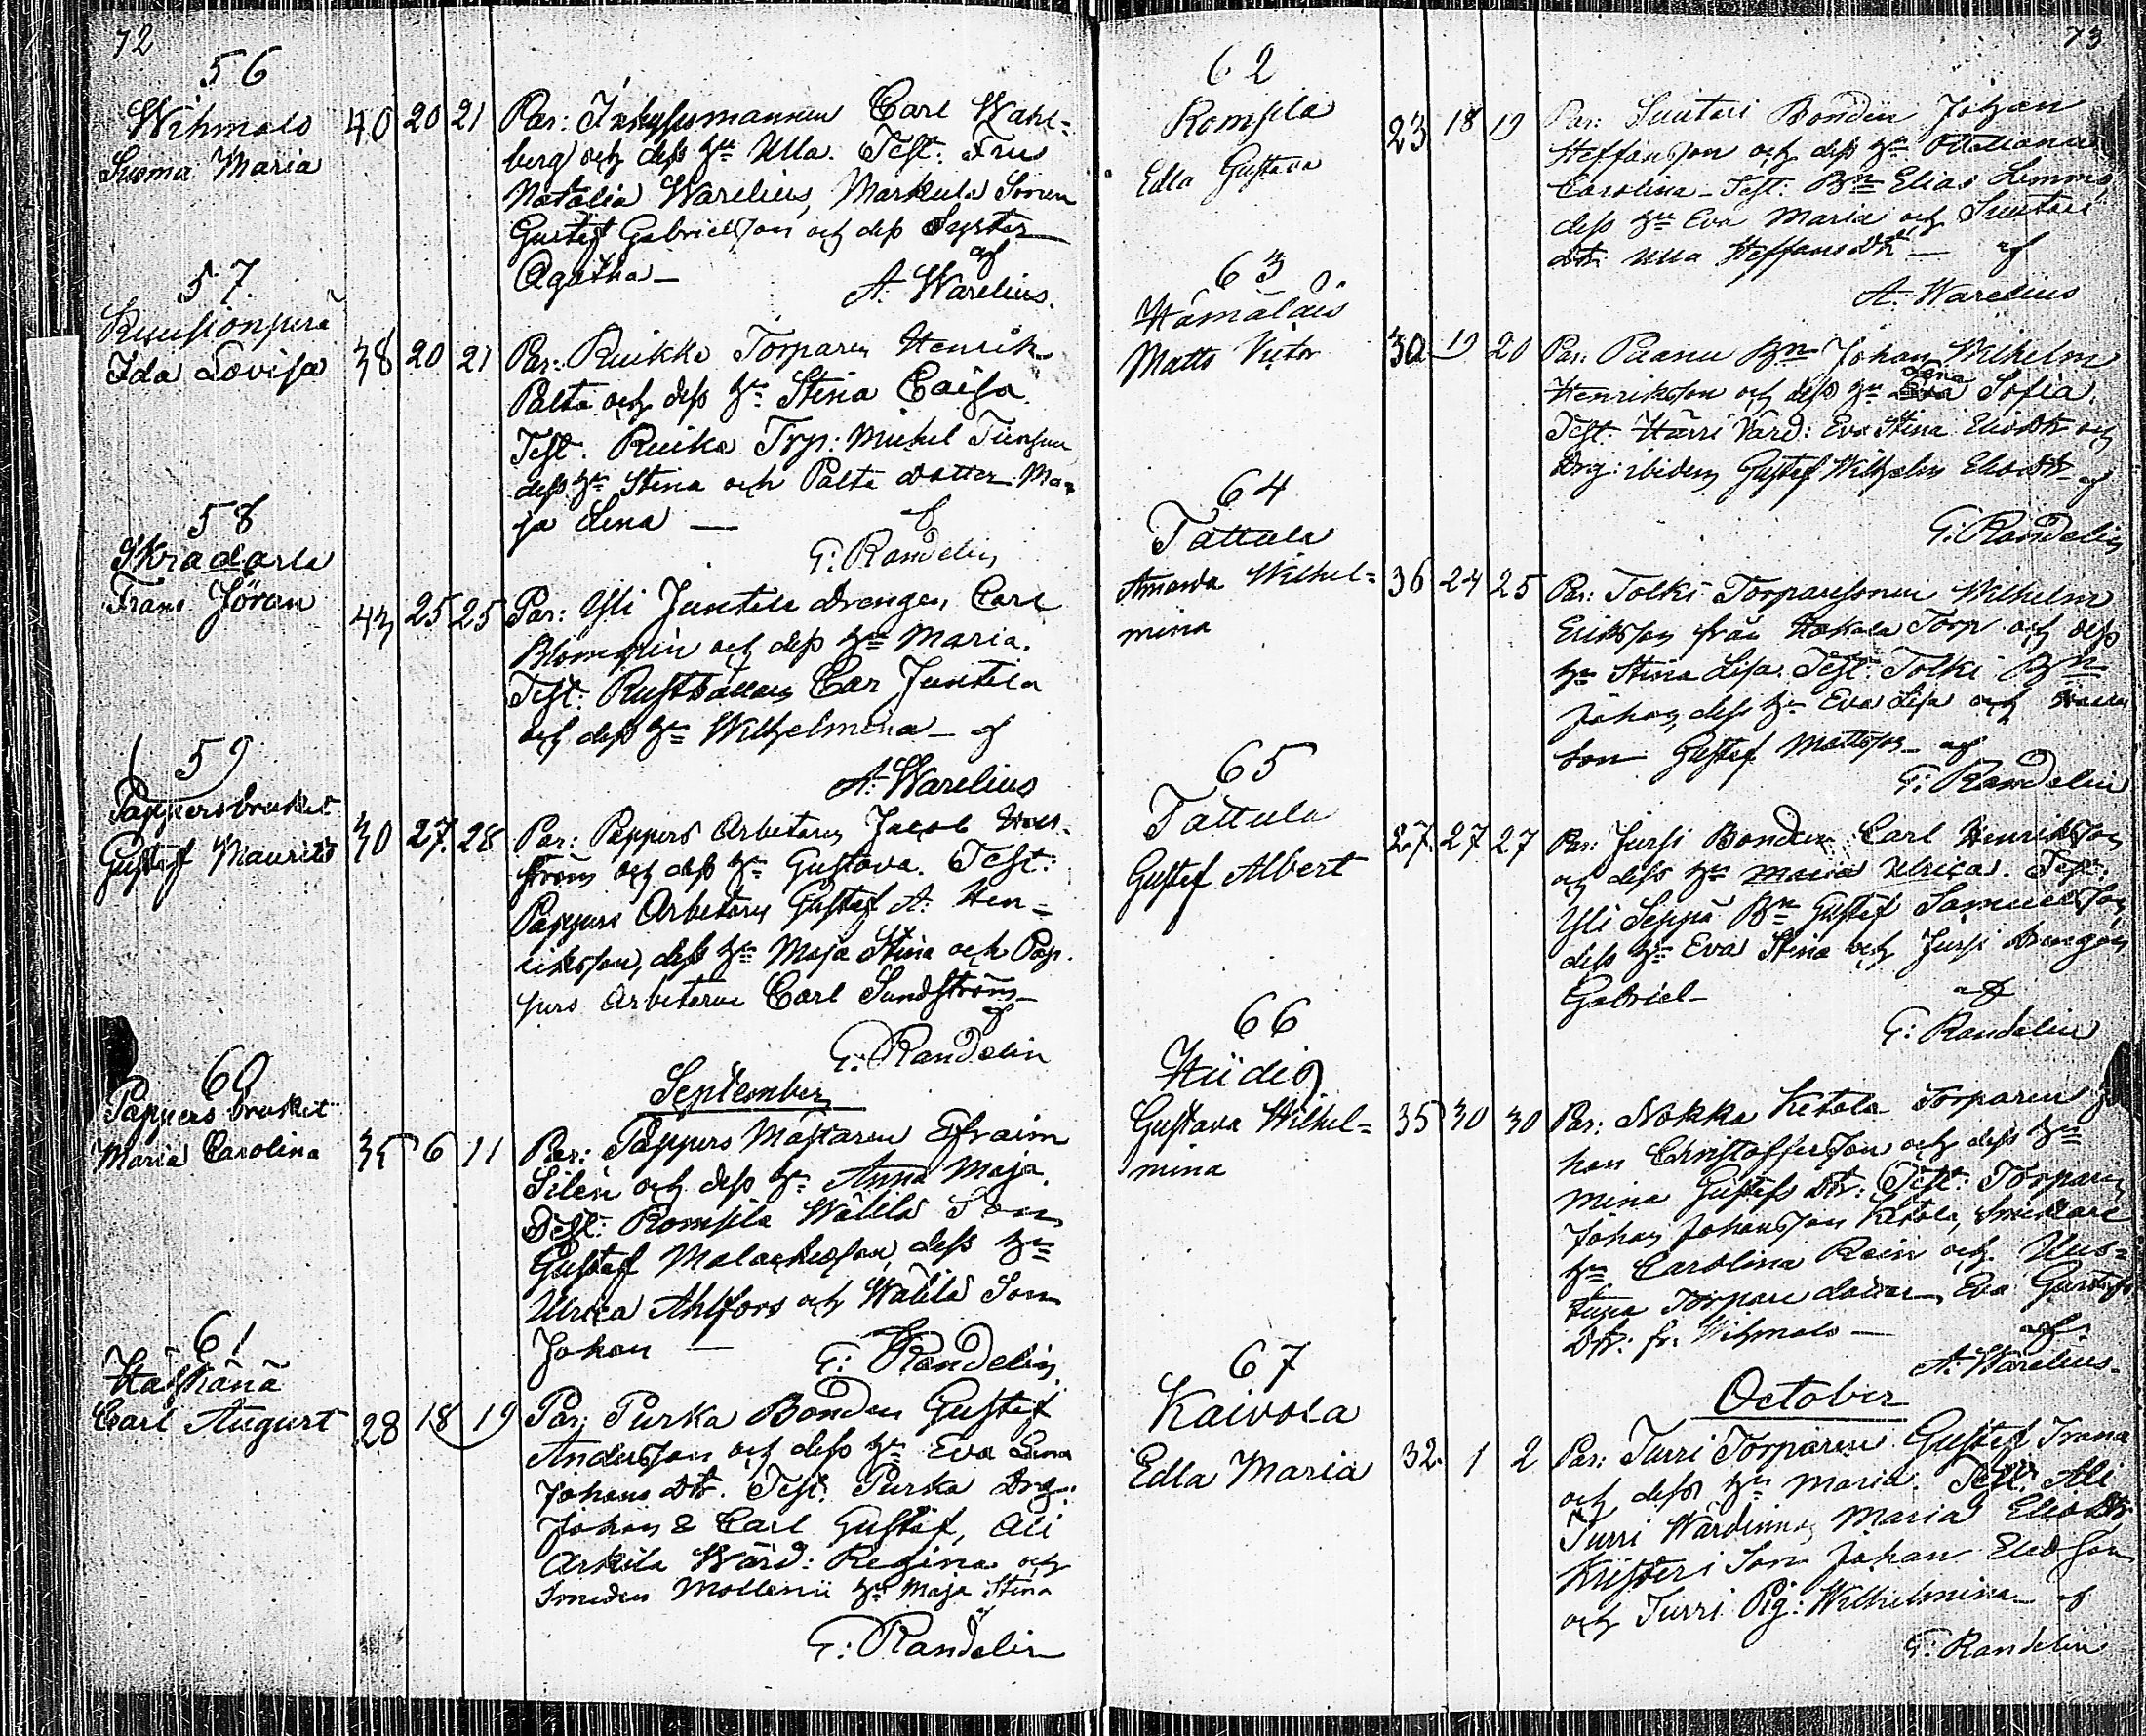 72
56
Wihmalo
Suoma Maria
40 20 21
Par: Inhysesmannen Carl Wahl=
berg och dess hu Ulla. Test: Fru
Natalia Warelius, Markula Sonen
Gustef Gabrielsson och dess Syster
Agatha — af
A. Warelius.
57.
Ruusionperä
Ida Lovisa
38 20 21
Par: Ruikka Torparen Henrik
Palta och dess hu Stina Caisa.
Test. Ruika Trp: Michel
dess hu Stina och Palta dotter Ma=
ja Lena — af
G: Randelin
58
Frans Jöran
43 25 25
Par: Yli Juntila drengen Carl
Blomqvin och dess hu Maria.
Test: Rusthållaren Carl Juntila
och dess hu Wilhelmina — af
A. Warelius
59
Pappersbruket
Gustaf Maurits
30 27. 28
Par: Pappers Arbetaren Jacob
ström och dess hu Gustava. Test:
Pappers Arbetaren Gustaf A. Hen=
riksson, dess hu Maja Stina och Pap.
pers Arbetaren Carl Sundström —
af
G: Randelin
September
60
Pappersbruket
Maria Carolina
35 6 11
Par: Pappers Mästaren Efraim
Silén och dess hu Anna Maja.
Test: Rompila Wälilä Son
Gustaf Malachiasson, dess hu
Ulrica Ahlfors och Wälilä Son
Johan — af
G: Randelin.
61
Häihänä
Carl August
28 18 19
Par: Purka Bonden Gustef
Andersson och dess hu Eva Lena
Johans dtr. Test: Purka Drg:
Johan & Carl Gustaf, Ali
Arkila Wärd: Regina och
Smeden Mollenii hu Maja Stina
af
G: Randelin
73
62
Rompila
Edla Gustava
23 18 19
Par: Suutari Bonden Johan
Steffansson och dess hu Ottiliana
Carolina — Test: Bn Elias Lemmo,
dess hu Eva Maria och Suutari
dtr: Ulla Steffans dtr — af
A. Warelius
63
Hämäläis
Matts Victor
30 19 20
Par: Paanu Bn Johan Wilhelm
Henriksson och dess hu Eva Anna Sofia.
Test: Härri Värd: Eva Stina Elias dtr och
Drg: ibidem Gustef Wilhelm — af
G. Randelin
64
Tattula
Amanda Wilhel=
mina
36 24 25
Par: Tolki Torparesonen Wilhelm
Eriksson från Hokala Torp och dess
hu Stina Lisa. Test: Tolki Bn
Johan, dess hu Eva Lisa och
Son Gustef Mattsson — af
G: Randelin
65
Tattula
Gustef Albert
27. 27 27
Par: Jussi Bonden Carl Henriksson
och dess hu Maria Ulrica. Test:
Yli Seppä Bn Gustef Samuelsson,
dess hu Eva Stina och Jussi drengen
Gabriel — af
G: Randelin
66
Hiidis
Gustava Wilhel=
mina
35 30 30
Par: Nokka Ketola Torparen Jo
han Christoffersson och dess hu
Mina Gustafs dtr: Test: Torparen
Johan Johansson Ketola, Smedlare
hu Carolina Rein och Uus=
tupa Torpare dotter Eva Gustafs
Dtr: fr. Wihmalo — af
A. Warelius.
October
67
Kaivola
Edla Maria
32. 1 2
Par: Turri Torparen Gustef Frans
och dess hu Maria. Test: Ali
Turri Wärdinna Maria Elias Dtr
Kiister Son Johan Eliasson
och Turri Pig: Wilhelmina — af
G. Randelin